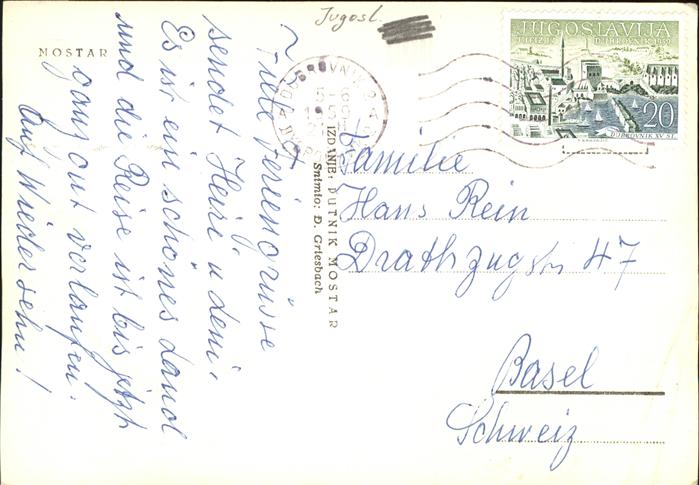 MOSTAR
Jugosl.
Viele Feriengrüsse
sendet Heiri u deni.
Es ist ein schönes Land
und die Reise ist bis jetzt
ganz gut verlaufen.
Auf Wiedersehn!
IZDANJE: PUTNIK MOSTAR
Snimio: Đ. Griesbach
JUGOSLAVIJA
DUBROVNIK
20
DUBROVNIK XV ST.
Familie
Hans Rein
Drathzugstr 47
Basel
Schweiz